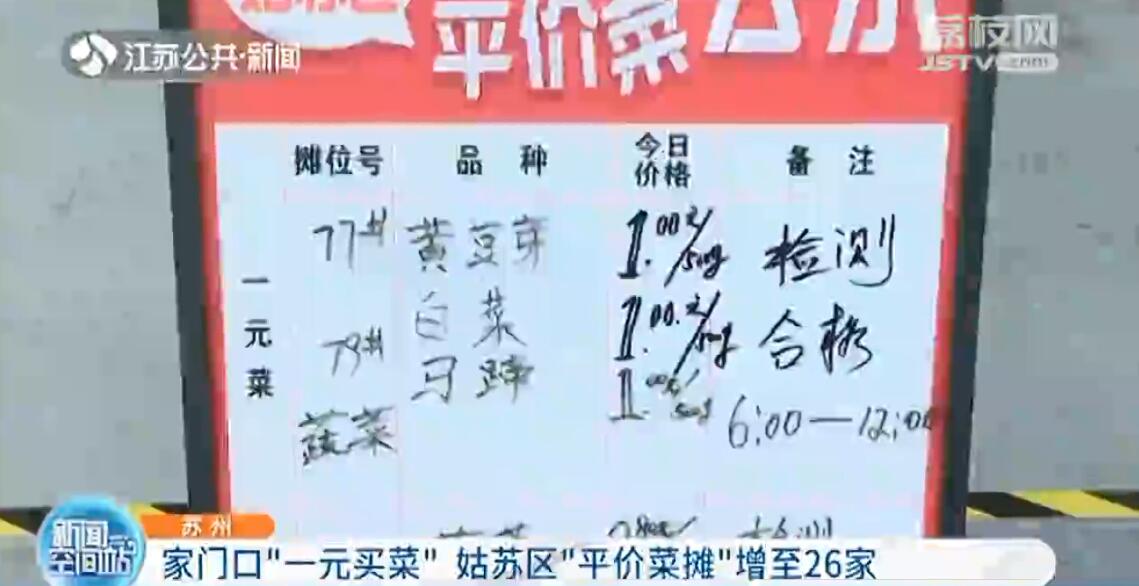 江苏公共·新闻
荔枝网
JSTV.com
平价菜公示
摊位号 品种 今日价格 备注
一元菜
77# 黄豆芽 1.00元/500g 检测
白菜 1.00元/500g 合格
79# 马蹄 1.00元/500g
蔬菜 6:00—12:00
新闻空间站
苏州
家门口"一元买菜" 姑苏区"平价菜摊"增至26家